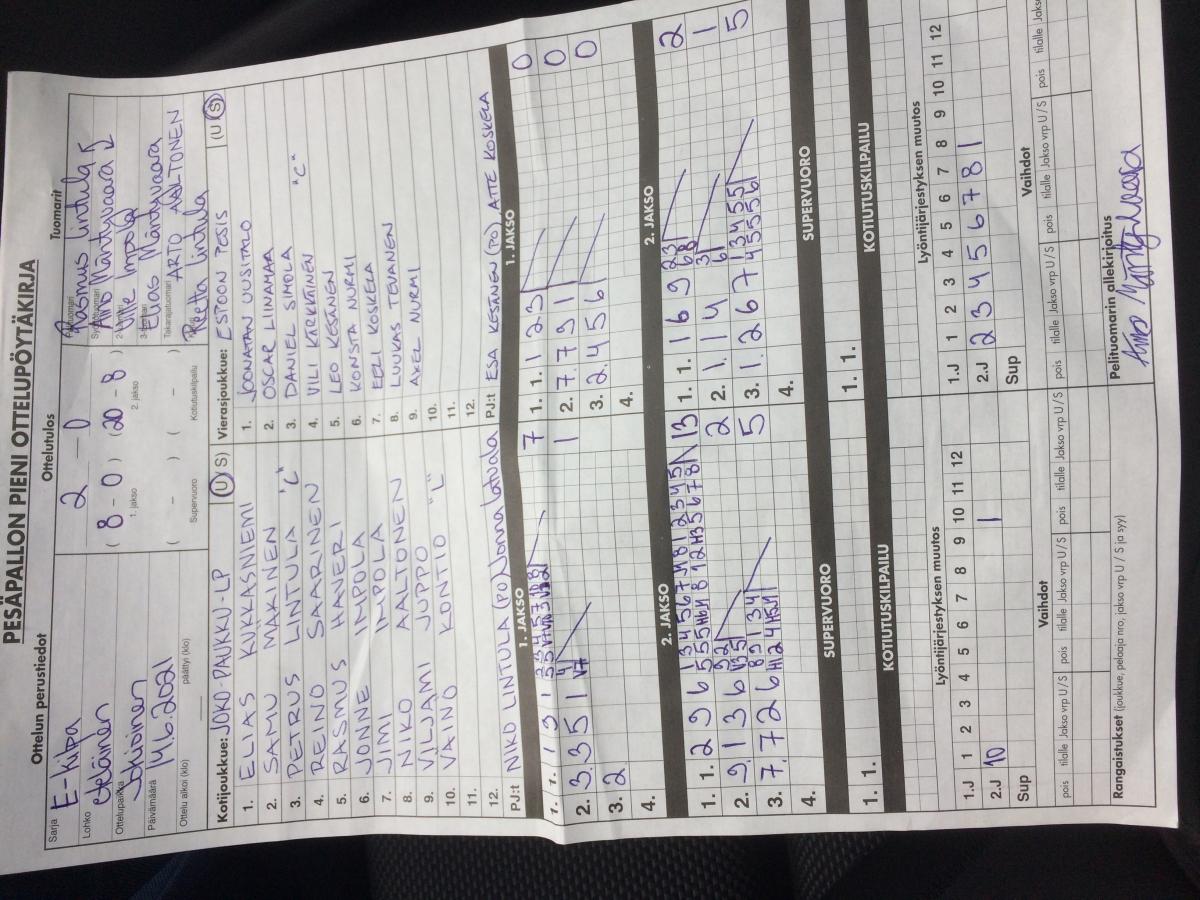 PESÄPALLON PIENI OTTELUPÖYTÄKIRJA
Ottelun perustiedot
Ottelutulos
Tuomarit
Sarja
E-kipa
Lohko
eteläinen
Ottelupaikka
Jokioinen
Päivämäärä
14.6.2021
Ottelu alkoi (klo)
päättyi (klo)
2 – 0
( 8 – 0 ) ( 20 – 8 )
1. jakso
2. jakso
( – ) ( – )
Supervuoro
Kotiutuskilpailu
Rasmus Lintula
Aino Mäntyvaara
2-tuomari
Ville Impola
3-tuomari
Elias Mäntyvaara
Takarajatuomari
ARTO AALTONEN
Reetta Lintula
Kotijoukkue: JOKO-PAUKKU-LP (U/S)
1. ELIAS KUKKASNIEMI
2. SAMU MÄKINEN
3. PETRUS LINTULA "C"
4. REINO SAARINEN
5. RASMUS HAVERI
6. JONNE IMPOLA
7. JIMI IMPOLA
8. NIKO AALTONEN
9. VILJAMI JUPPO
10. VÄINÖ KONTIO "L"
11.
12.
PJ:t NIKO LINTULA (PO) Jonna Latvala
Vierasjoukkue: ESPOON PESIS (U/S)
1. JOONATAN UUSITALO
2. OSCAR LIINAMAA
3. DANIEL SIMOLA "C"
4. VILI KÄRKKÄINEN
5. LEO KESÄNEN
6. KONSTA NURMI
7. EELI KOSKELA
8. LUUKAS TEVANEN
9. AXEL NURMI
10.
11.
12.
PJ:t ESA KESÄNEN (PO), ATTE KOSKELA
1. JAKSO
1. 1. 1 9 1 7
2. 3. 3 5 1 1
3. 2
4.
1. JAKSO
1. 1. 1 2 3 0
2. 7. 7 9 1 0
3. 2. 4 5 6 0
4.
2. JAKSO
1. 1. 2 9 6 13
2. 9. 1 3 6 2
3. 7. 7 2 6 5
4.
2. JAKSO
1. 1. 1 6 9 2
2. 1. 1 4 1
3. 1. 2 6 7 5
4.
SUPERVUORO
1. 1.
SUPERVUORO
1. 1.
KOTIUTUSKILPAILU
KOTIUTUSKILPAILU
Lyöntijärjestyksen muutos
1.J 1 2 3 4 5 6 7 8 9 10 11 12
2.J 10 1
Sup
Lyöntijärjestyksen muutos
1.J 1 2 3 4 5 6 7 8 9 10 11 12
2.J 2 3 4 5 6 7 8 1
Sup
Vaihdot
pois tilalle Jakso vrp U / S pois tilalle Jakso vrp U / S pois tilalle jakso vrp U / S
Vaihdot
pois tilalle Jakso vrp U / S pois tilalle Jakso vrp U / S pois tilalle Jakso
Rangaistukset (joukkue, pelaaja nro, jakso vrp U / S ja syy)
Pelituomarin allekirjoitus
Aino Mäntyvaara